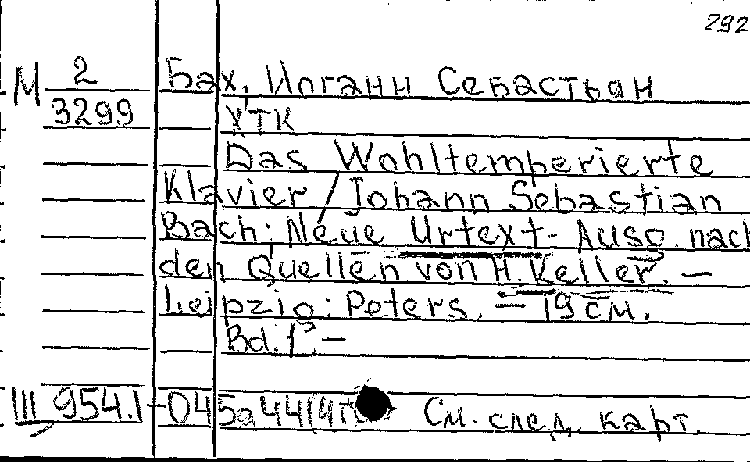 292
М 2 Бах, Иоганн Себастьян
3299 ХТК
Das Wohltemperierte
Klavier / Johann Sebastian
Bach; Neue Urtext-Ausg. nach
den Quellen von H. Keller. —
Leipzig: Peters. — 19 см.
Bd. 1. —
III 954.1 См. след. карт.